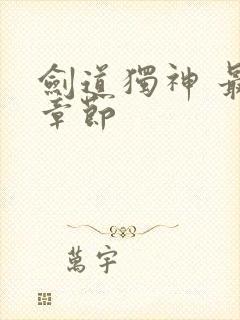 劍道獨神 最
章節
萬宇